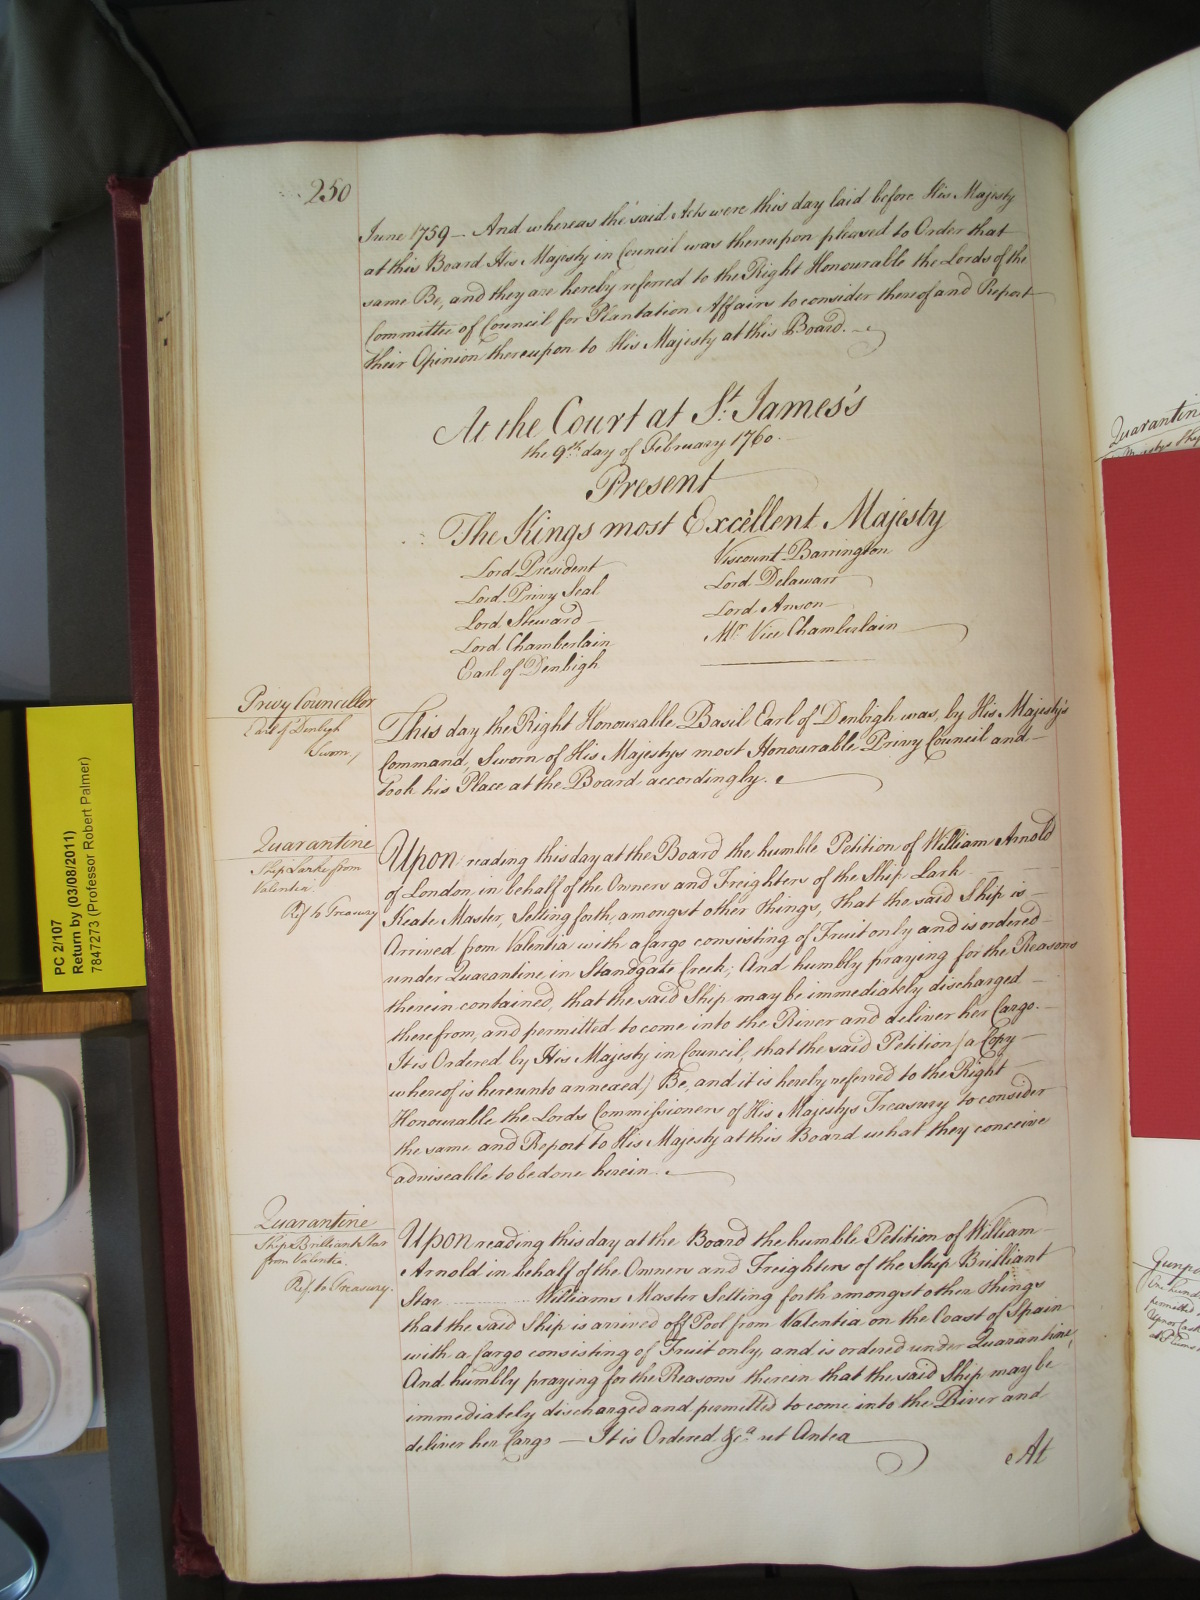 250
June 1759 — And whereas the said Acts were this day laid before His Majesty
at this Board His Majesty in Council was thereupon pleased to Order that
same Be, and they are hereby referred to the Right Honourable the Lords of the
Committee of Council for Plantation Affairs to consider thereof and Report
their Opinion thereupon to His Majesty at this Board.
At the Court at St: James's
the 9th day of February 1760.
Present
The Kings most Excellent Majesty
Lord President
Lord Privy Seal
Lord Steward
Lord Chamberlain
Earl of Denbigh
Viscount Barrington
Lord Delawarr
Lord Anson
Mr. Vice Chamberlain
Privy Councillor
Earl of Denbigh
Sworn,
This day the Right Honourable Basil Earl of Denbigh was, by His Majesty's
Command, Sworn of His Majestys most Honourable Privy Council and
Took his Place at the Board accordingly.
Quarantine
Ship Larke from
Valentia.
Ref. to Treasury
Upon reading this day at the Board the humble Petition of William Arnold
of London in behalf of the Owners and Freighters of the Ship Lark
Keate Master, Setting forth, amongst other things, that the said Ship is
Arrived from Valentia with a Cargo consisting of Fruit only and is ordered
under Quarantine in Standgate Creek; And humbly praying for the Reasons
therein contained, that the said Ship may be immediately discharged
therefrom, and permitted to come into the River and deliver her Cargo.
It is Ordered by His Majesty in Council, that the said Petition (a Copy
whereof is hereunto annexed) Be, and it is hereby referred to the Right
Honourable the Lords Commissioners of His Majestys Treasury to consider
the same and Report to His Majesty at this Board what they conceive
adviseable to be done herein.
Quarantine
Ship Brilliant Star
from Valentia.
Ref. to Treasury.
Upon reading this day at the Board the humble Petition of William
Arnold in behalf of the Owners and Freighters of the Ship Brilliant
Star Williams Master Setting forth amongst other things
that the said Ship is arrived off Pool from Valentia on the Coast of Spain
with a Cargo consisting of Fruit only, and is ordered under Quarantine,
And humbly praying for the Reasons therein that the said Ship may be
immediately discharged and permitted to come into the River and
deliver her Cargo — It is Ordered &ca. ut Antea
At
PC 2/107
Return by (03/08/2011)
7847273 (Professor Robert Palmer)
Quarantin